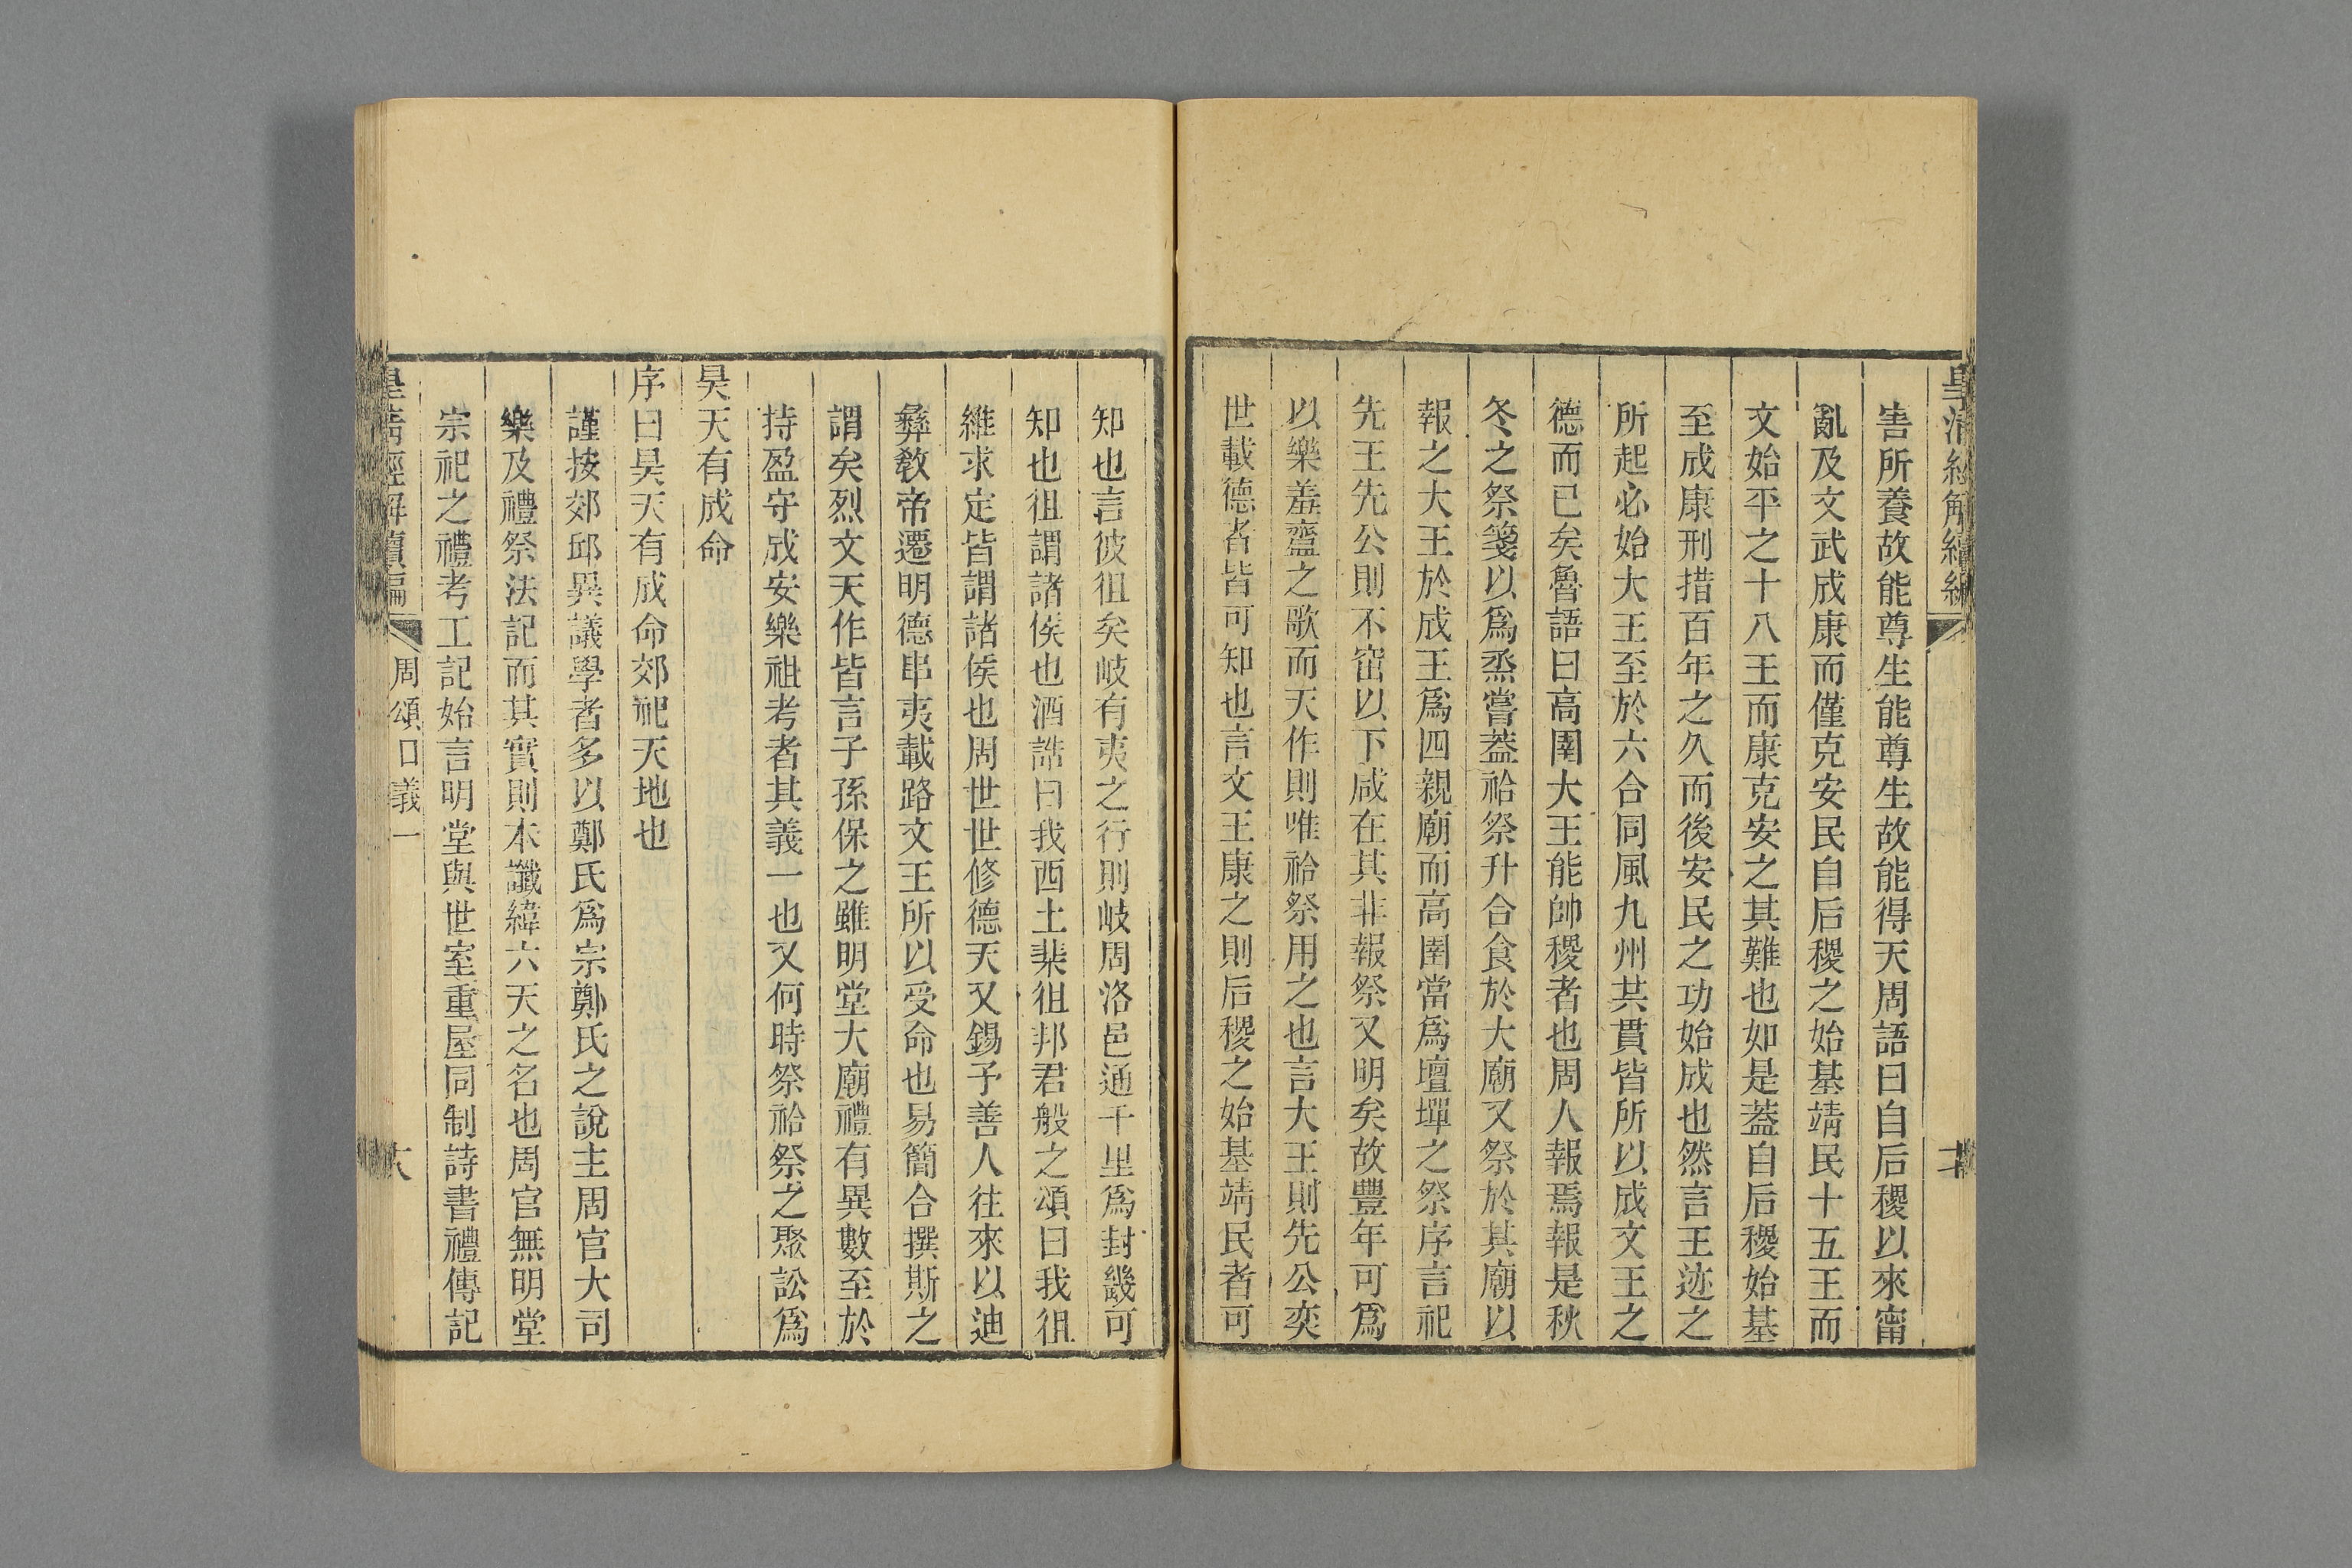 皇清經解續編
害所養故能尊生能尊生故能得天周語曰自后稷以來甯
亂及文武成康而僅克安民自后稷之始基靖民十五王而
文始平之十八王而康克安之其難也如是葢自后稷始基
至成康刑措百年之久而後安民之功始成也然言王迹之
所起必始大王至於六合同風九州共貫皆所以成文王之
德而已矣魯語曰高圉大王能帥稷者也周人報焉報是秋
冬之祭箋以爲烝嘗葢祫祭升合食於大廟又祭於其廟以
報之大王於成王爲四親廟而高圉當爲壇墠之祭序言祀
先王先公則不窋以下咸在其非報祭又明矣故豐年可爲
以樂羞齍之歌而天作則唯祫祭用之也言大王則先公奕
世載德者皆可知也言文王康之則后稷之始基靖民者可
知也言彼徂矣岐有夷之行則岐周洛邑通千里爲封畿可
知也徂謂諸侯也酒誥曰我西土棐徂邦君般之頌曰我徂
維求定皆謂諸侯也周世世修德天又錫予善人往來以迪
彝敎帝遷明德串夷載路文王所以受命也易簡合撰斯之
謂矣烈文天作皆言子孫保之雖明堂大廟禮有異數至於
持盈守成安樂祖考者其義一也又何時祭祫祭之聚訟爲
昊天有成命
序曰昊天有成命郊祀天地也
謹按郊邱異議學者多以鄭氏爲宗鄭氏之說主周官大司
樂及禮祭法記而其實則本讖緯六天之名也周官無明堂
宗祀之禮考工記始言明堂與世室重屋同制詩書禮傳記
皇清經解續編
周頌口義一